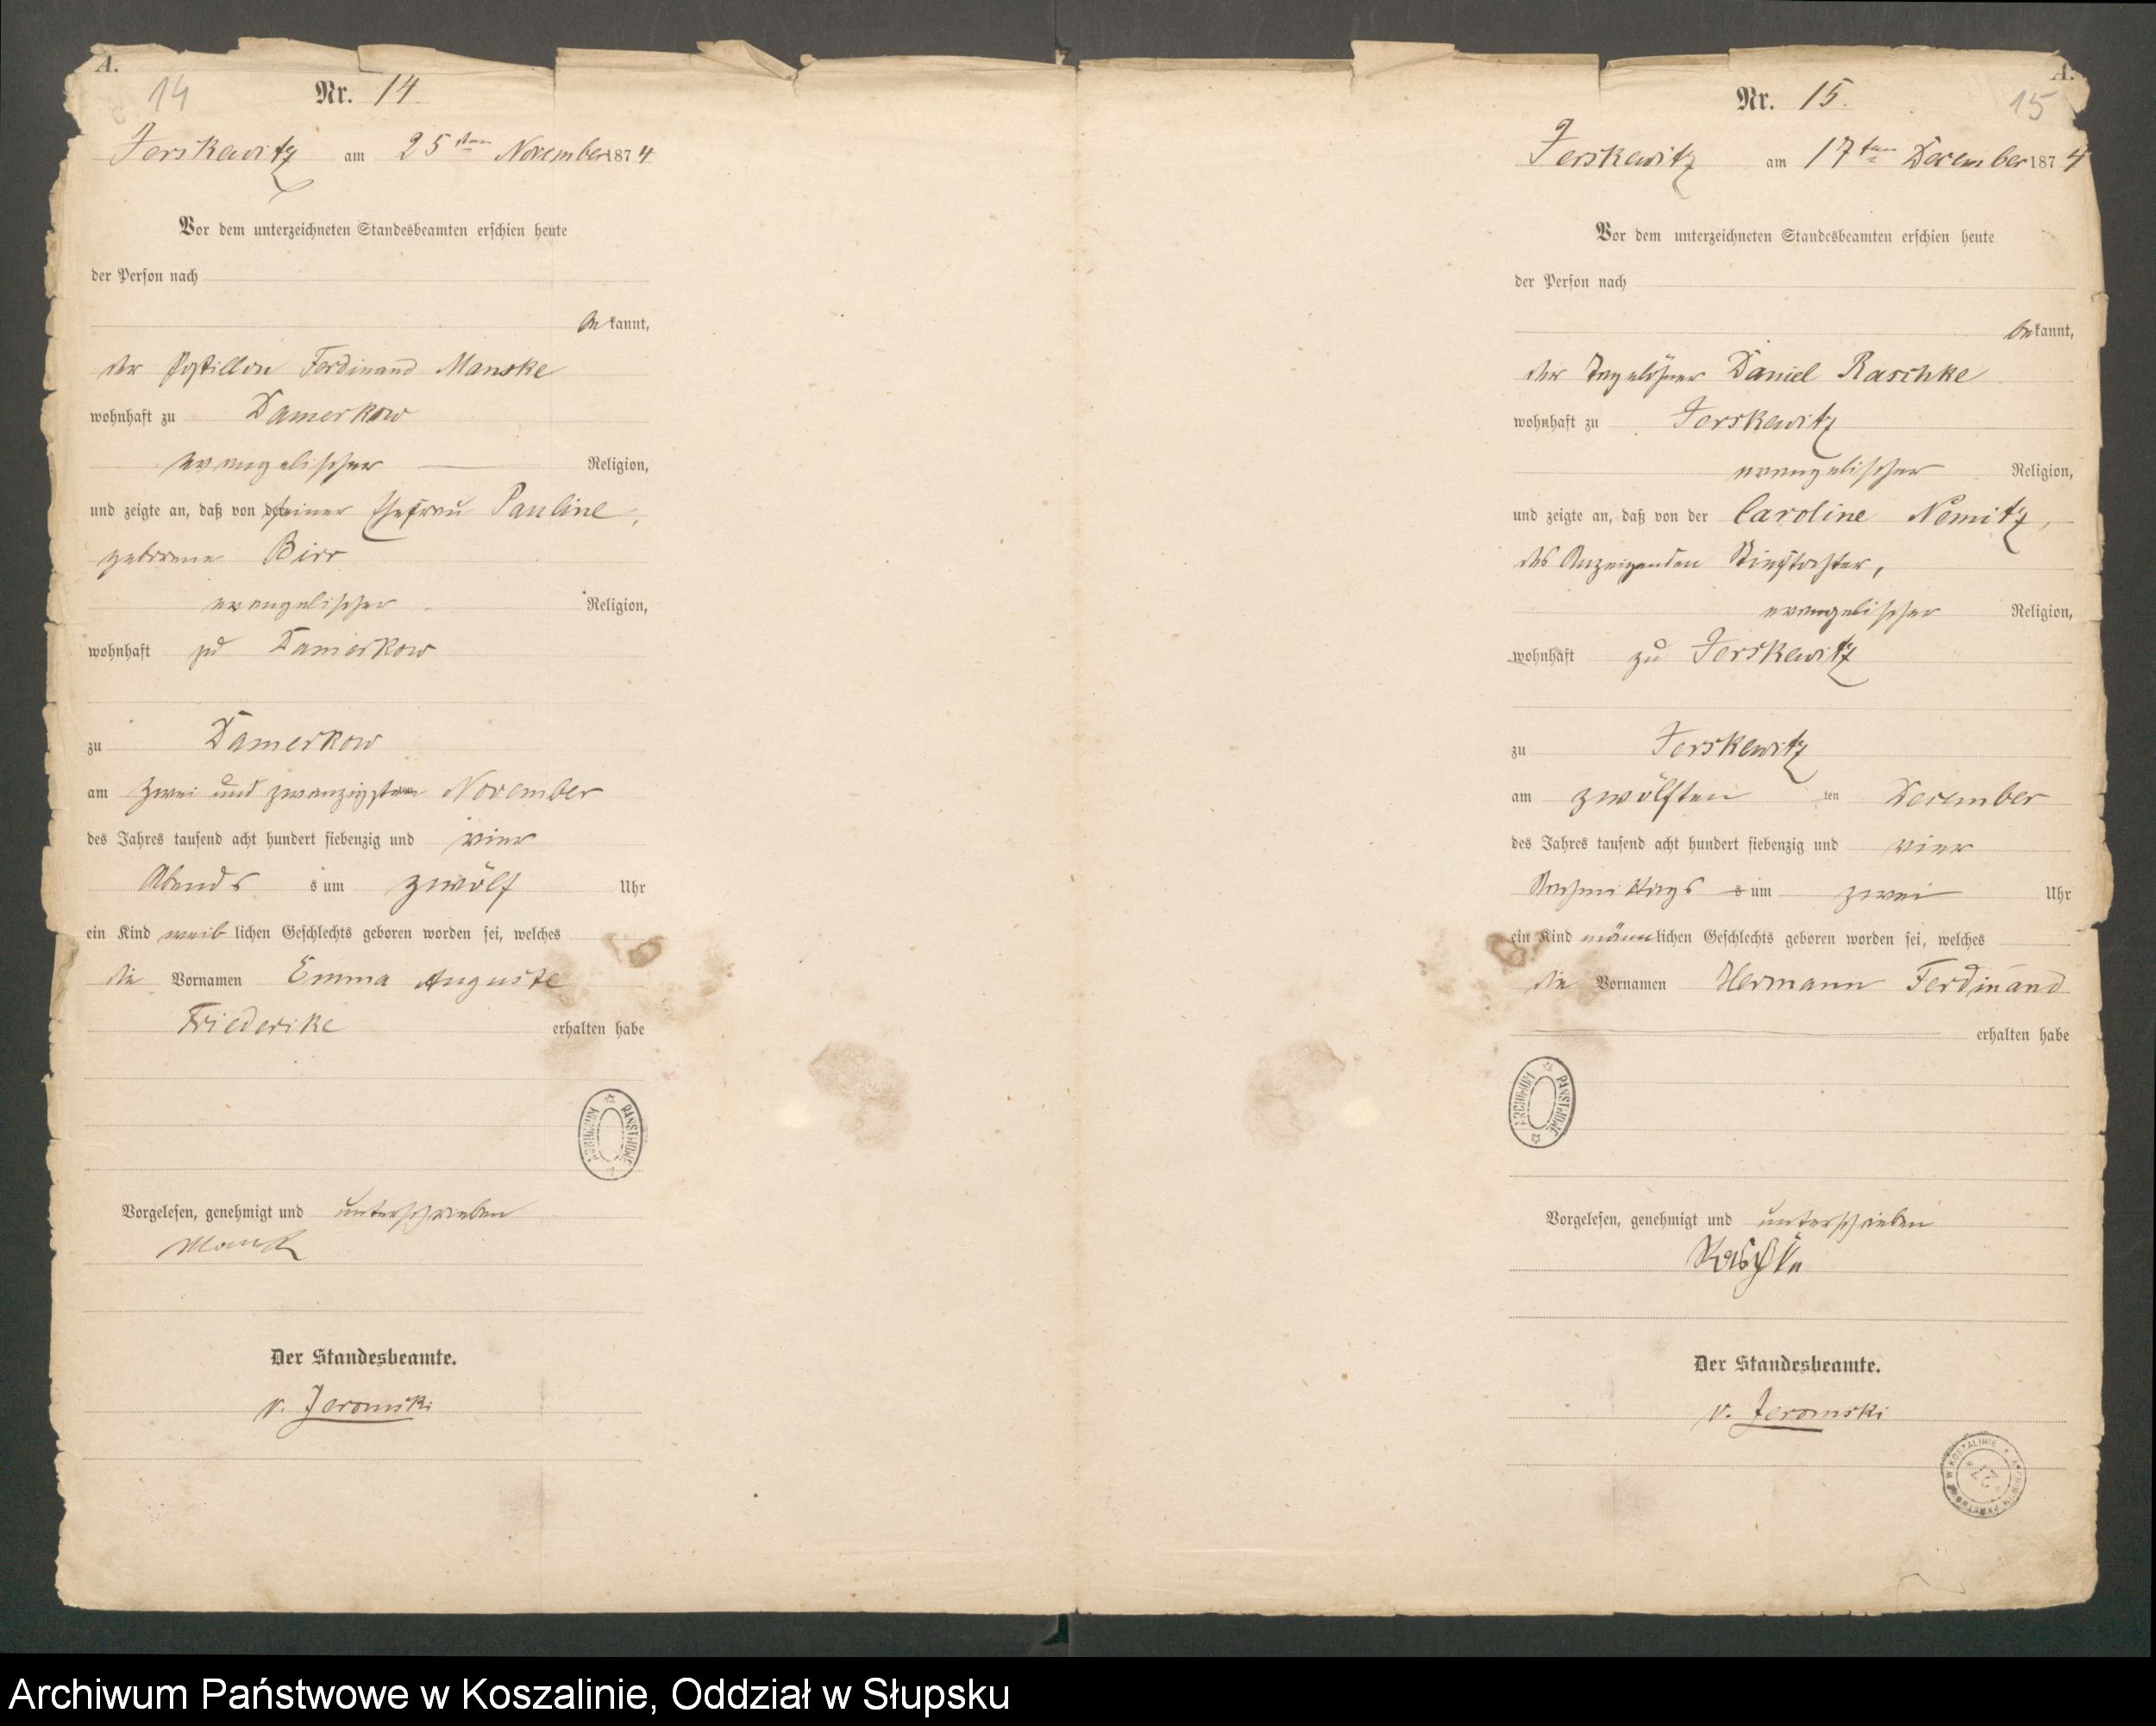 A.
14
Nr. 14.
Jerskewitz am 25ten November 1874
Vor dem unterzeichneten Standesbeamten erschien heute
der Person nach
bekannt,
der Postillon Ferdinand Manske
wohnhaft zu Damerkow
evangelischer Religion,
und zeigte an, daß von seiner Ehefrau Pauline,
geborene Birr
evangelischer Religion,
wohnhaft zu Damerkow
zu Damerkow
am zwei und zwanzigsten November
des Jahres tausend acht hundert siebenzig und vier
Abends s um zwölf Uhr
ein Kind weiblichen Geschlechts geboren worden sei, welches
die Vornamen Emma Auguste
Friederike erhalten habe
ARCHIWUM PAŃSTWOWE
Vorgelesen, genehmigt und unterschrieben
Der Standesbeamte.
v. Jeromski
A.
15
Nr. 15.
Jerskewitz am 17ten December 1874
Vor dem unterzeichneten Standesbeamten erschien heute
der Person nach
bekannt,
der Tagelöhner Daniel Raschke
wohnhaft zu Jerskewitz
evangelischer Religion,
und zeigte an, daß von der Caroline Nemitz,
des Anzeigenden Stieftochter,
evangelischer Religion,
wohnhaft zu Jerskewitz
zu Jerskewitz
am zwölften ten December
des Jahres tausend acht hundert siebenzig und vier
Nachmittags s um zwei Uhr
ein Kind männlichen Geschlechts geboren worden sei, welches
die Vornamen Hermann Ferdinand
erhalten habe
ARCHIWUM PAŃSTWOWE
Vorgelesen, genehmigt und unterschrieben
Raschke
Der Standesbeamte.
v. Jeromski
ARCHIWUM PAŃSTWOWE W KOSZALINIE
Archiwum Państwowe w Koszalinie, Oddział w Słupsku